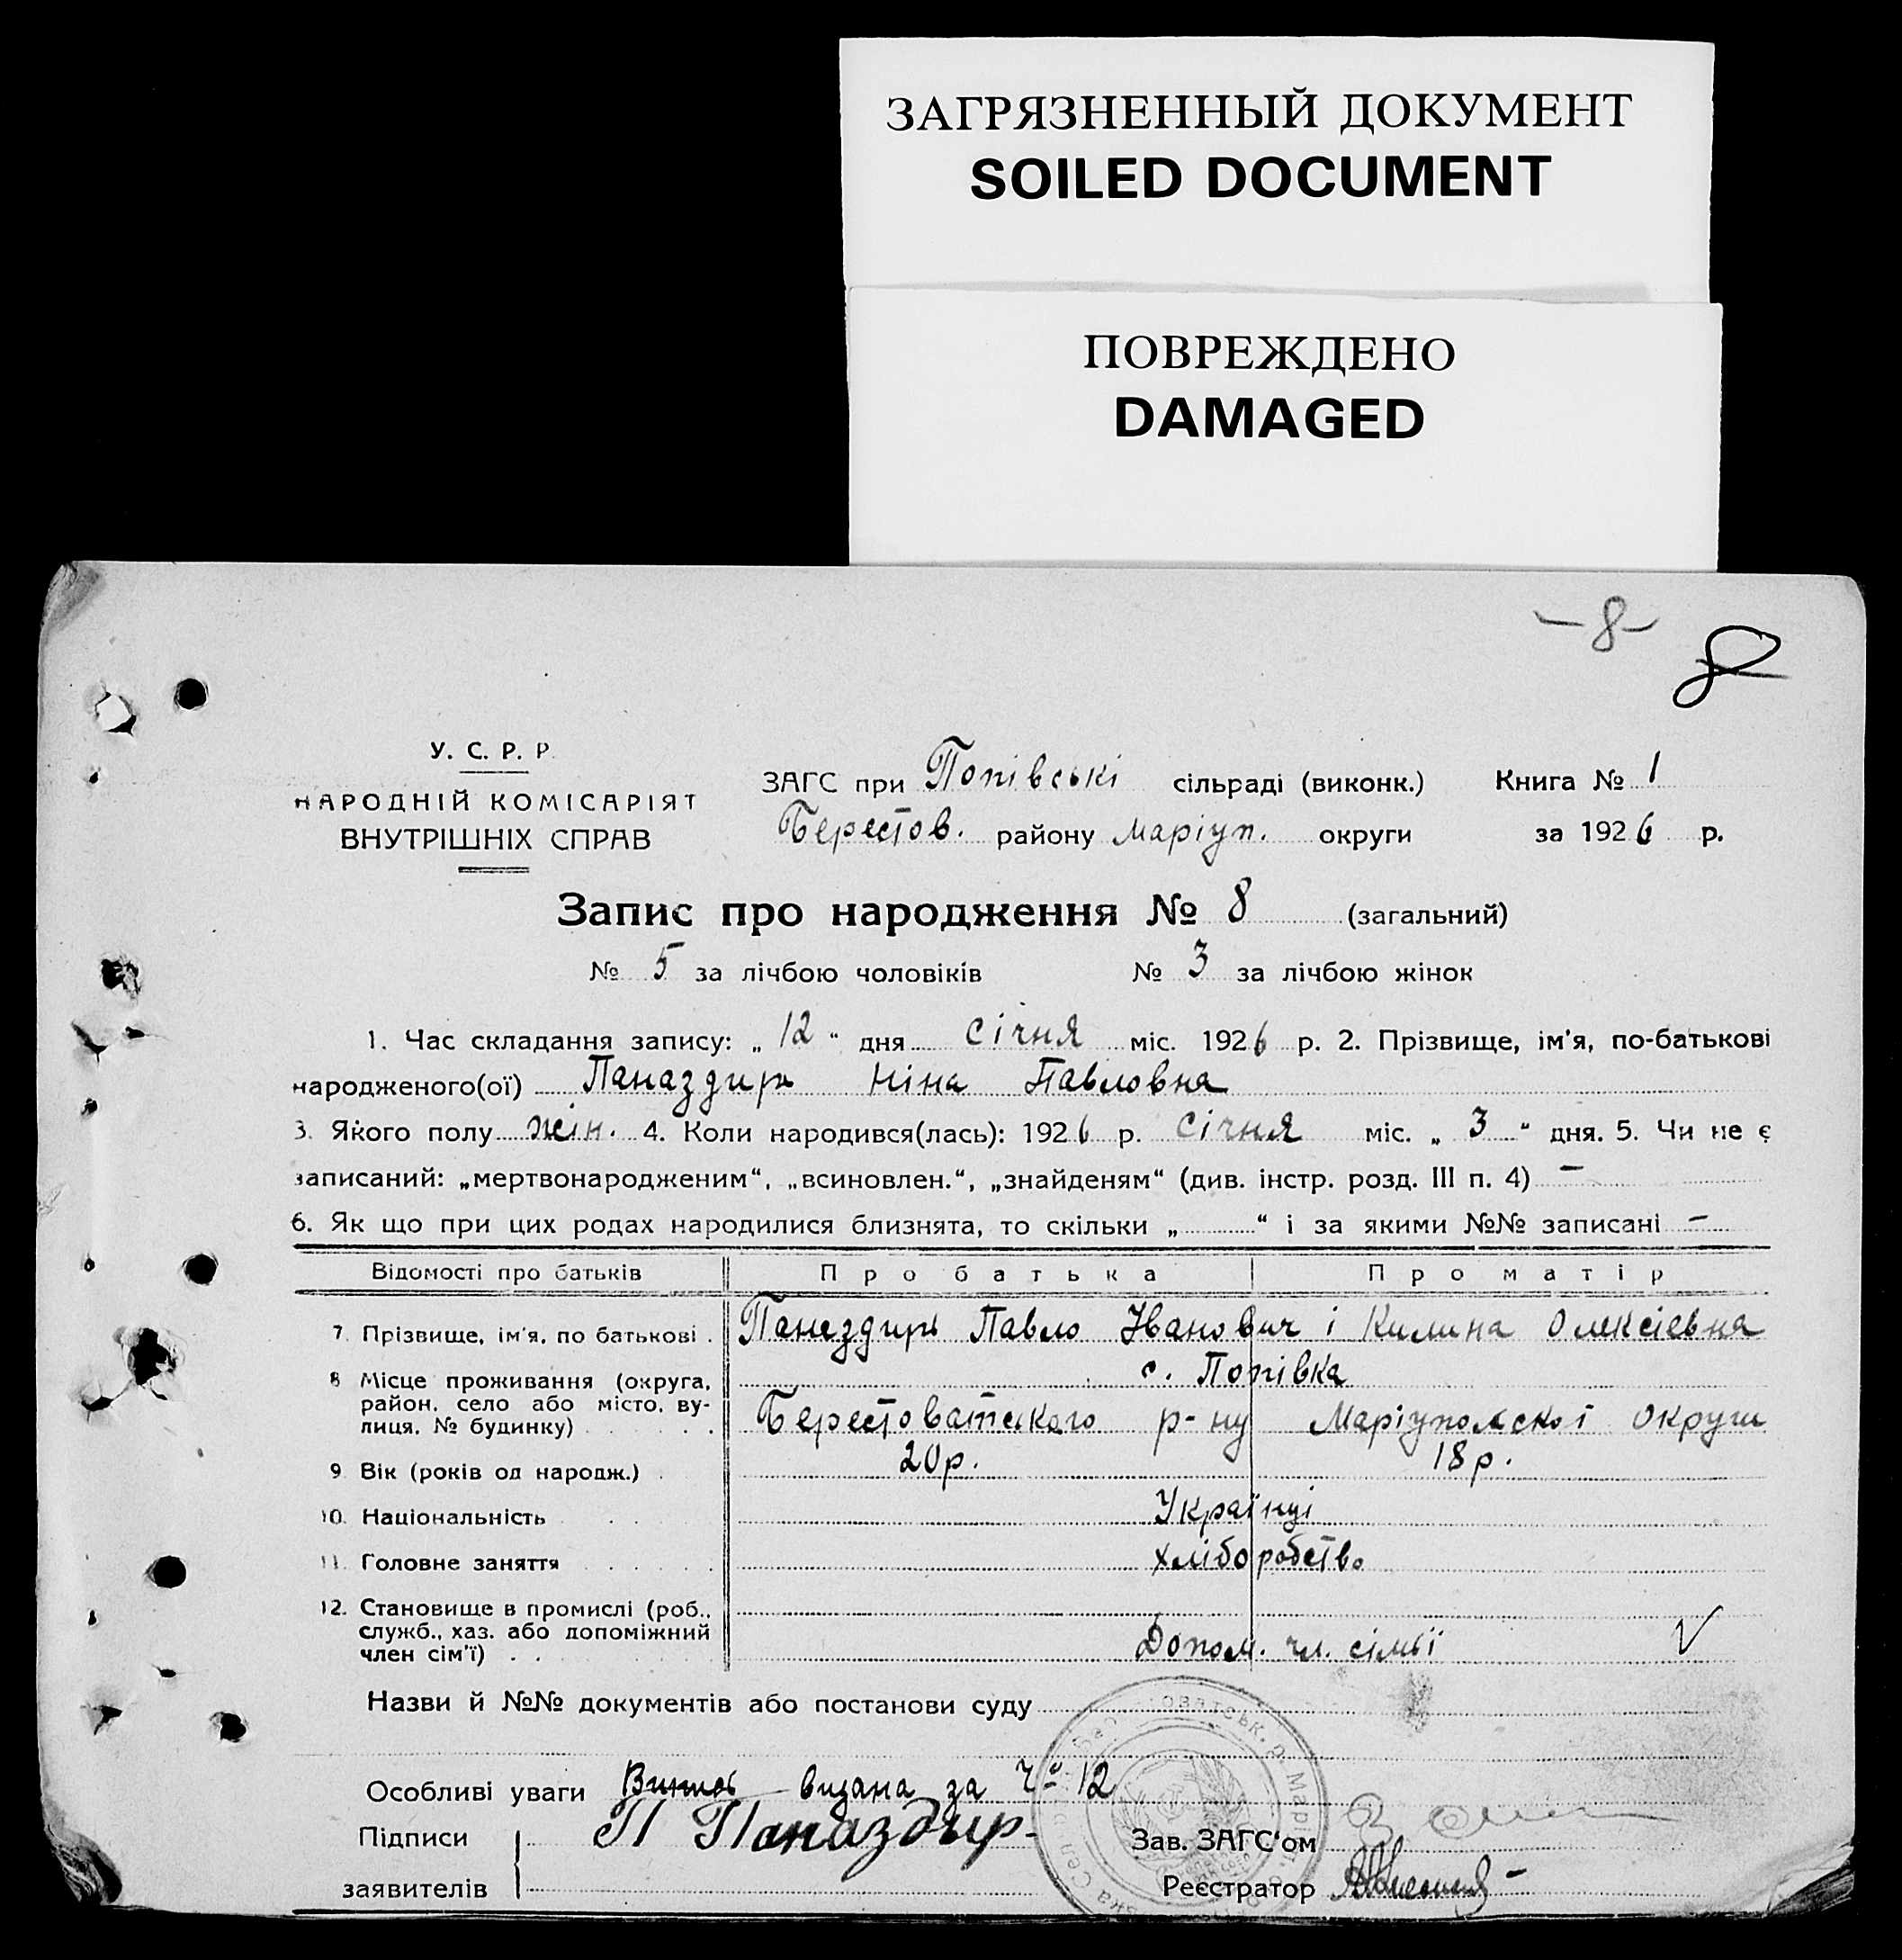 ЗАГРЯЗНЕННЫЙ ДОКУМЕНТ
SOILED DOCUMENT
ПОВРЕЖДЕНО
DAMAGED
-8-
8
У. С. Р. Р.
НАРОДНІЙ КОМІСАРІЯТ
ВНУТРІШНІХ СПРАВ
ЗАГС при Попівські сільраді (виконк.) Книга № 1
Берестов. району Маріуп. округи за 1926 р.
Запис про народження № 8 (загальний)
№ 5 за лічбою чоловіків № 3 за лічбою жінок
1. Час складання запису: „ 12 “ дня січня міс. 1926 р. 2. Прізвище, ім'я, по-батькові
народженого(ої) Паназдирь Ніна Павловна
3. Якого полу жін. 4. Коли народився(лась): 1926 р. Січня міс. „ 3 “ дня. 5. Чи не є
записаний: „мертвонародженим“, „всиновлен.“, „знайденям“ (див. інстр. розд. III п. 4) —
6. Як що при цих родах народилися близнята, то скільки „ “ і за якими №№ записані —
Відомості про батьків Про батька Про матір
7. Прізвище, ім'я, по батькові . Паназдирь Павло Іванович і Килина Олексієвна
8 Місце проживання (округа, район, село або місто, вулиця, № будинку) с. Попівка
Берестоватського р-ну Маріупольскої округи
9 Вік (років од народж.) 20р. 18р.
10. Національність Українці
11. Головне заняття хліборобство
12. Становище в промислі (роб., служб., хаз. або допоміжний член сім'ї) Допом. чл. сімьї
Назви й №№ документів або постанови суду
Особливі уваги Випись видана за № 12
Підписи П Паназдир Зав. ЗАГС'ом
заявителів Реєстратор